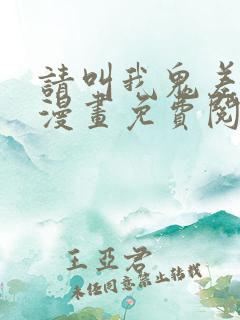 請叫我鬼差
漫畫免費閱
王亞君
未經同意禁止轉載